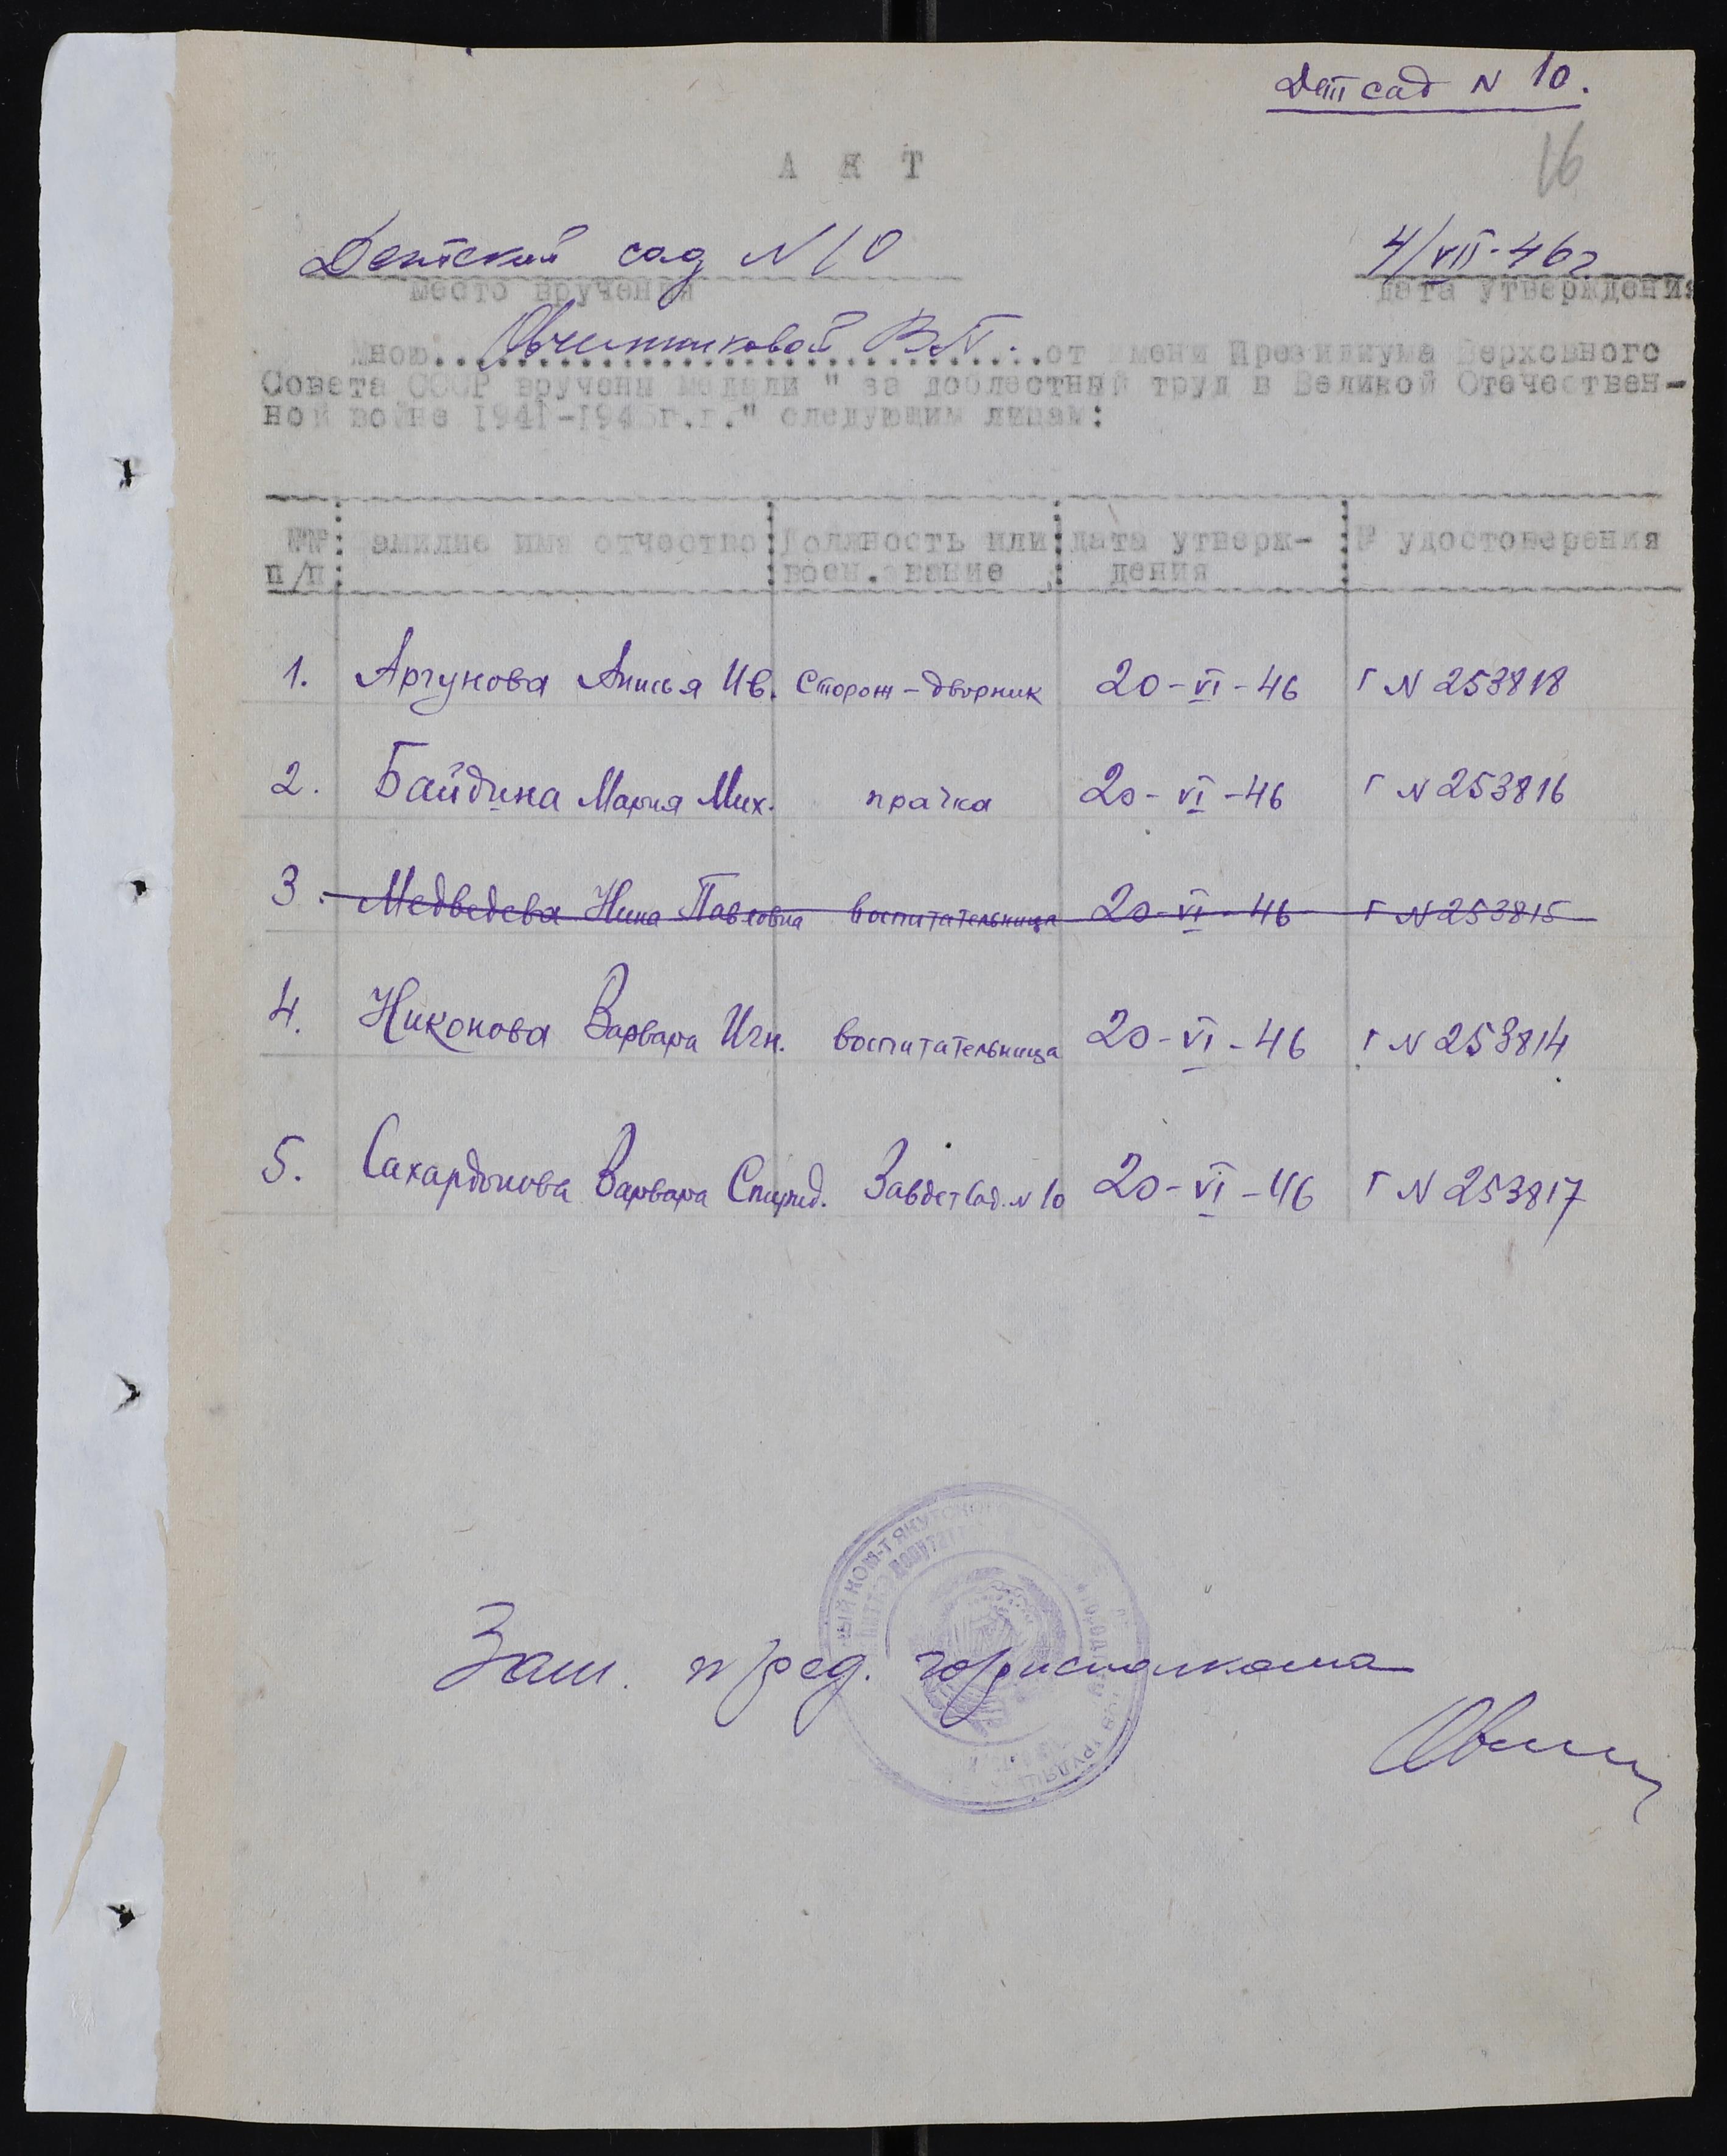 Детсад N 10.
16
А К Т
Детский сад N 10
4/VII-46г
место вручения
дата утверждения
Мною Овчинниковой В.П. от имени Президиума Верховного
Совета СССР вручены медали " за доблестный труд в Великой Отечествен-
ной войне 1941-1945г.г." следующим лицам:
№№ фамилие имя отчество Должность или дата утверж- № удостоверения
п/п воен.звание дения
1. Аргунова Анисья Ив. Сторож-дворник 20-VI-46 Г N 253818
2. Байдина Мария Мих. прачка 20-VI-46 Г N 253816
3. Медведева Нина Павловна воспитательница 20-VI-46 Г N 253815
4. Никонова Варвара Игн. воспитательница 20-VI-46 Г N 253814
5. Сахардонова Варвара Спирид. Завдетсад. N 10 20-VI-46 Г N 253817
Зам. пред. горисполкома